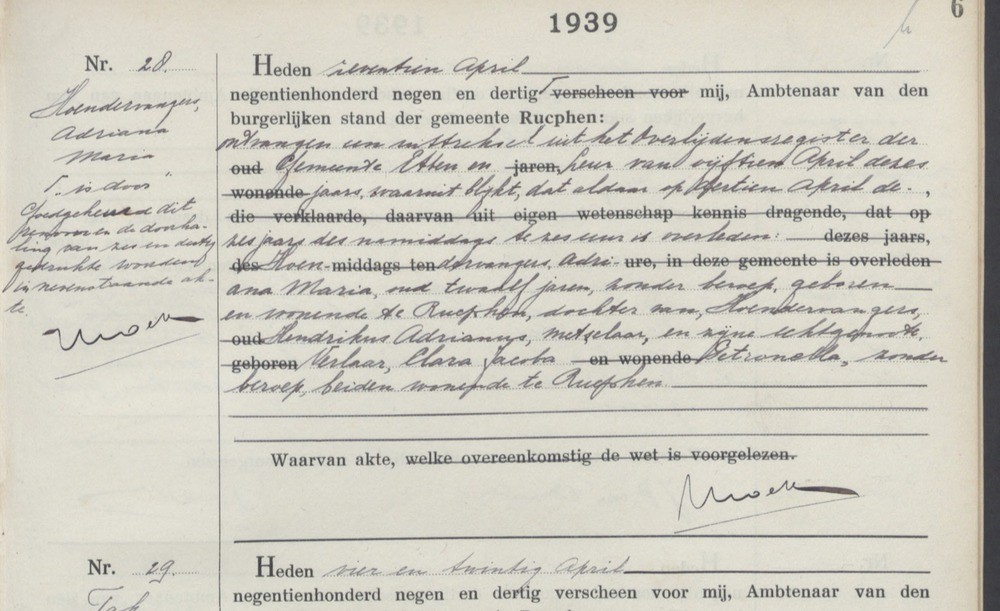 1939
6
Nr. 28.
Hoendervangers,
Adriana
Maria
"is door"
Goedgekeurd dit
renvooi en de doorha-
ling van zes en dertig
gedrukte woorden
in nevenstaande ak-
te.
Heden zeventien April
negentienhonderd negen en dertig verscheen voor mij, Ambtenaar van den
burgerlijken stand der gemeente Rucphen:
ontvangen een uittreksel uit het Overlijdensregister der
oud Gemeente Etten en jaren, Leur van vijftien April dezes
wonende jaars, waaruit blijkt, dat aldaar op dertien April de- ,
die verklaarde, daarvan uit eigen wetenschap kennis dragende, dat op
zes jaars des namiddags te zes uur is overleden: dezes jaars,
des Hoen- middags ten dervangers, Adri- ure, in deze gemeente is overleden
ana Maria, oud twaalf jaren, zonder beroep, geboren
en wonende te Rucphen, dochter van Hoendervangers,
oud Hendrikus Adrianus, metselaar, en zijne echtgenoote
geboren Verlaar, Clara Jacoba en wonende Petronella, zonder
beroep, beiden wonende te Rucphen.
Waarvan akte, welke overeenkomstig de wet is voorgelezen.
Nr. 29.
Heden vier en twintig April
negentienhonderd negen en dertig verscheen voor mij, Ambtenaar van den